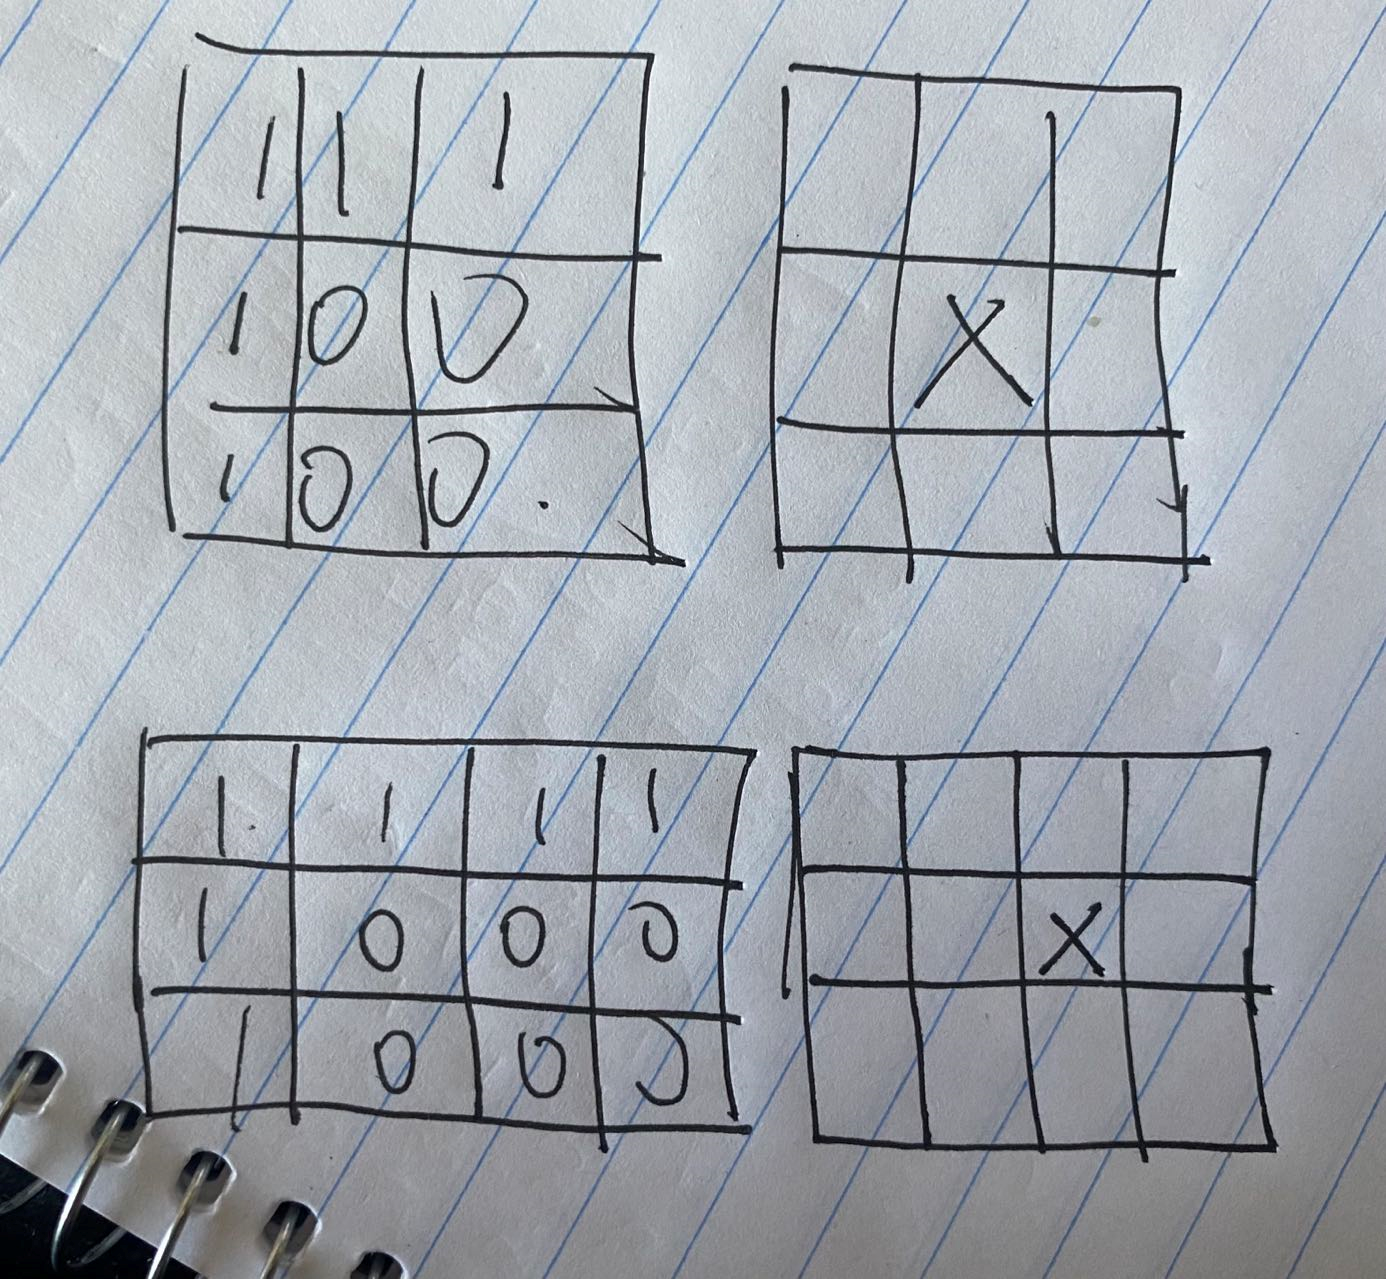 1 1 1
1 0 0
X
1 0 0
1 1 1 1
1 0 0 0
X
1 0 0 0